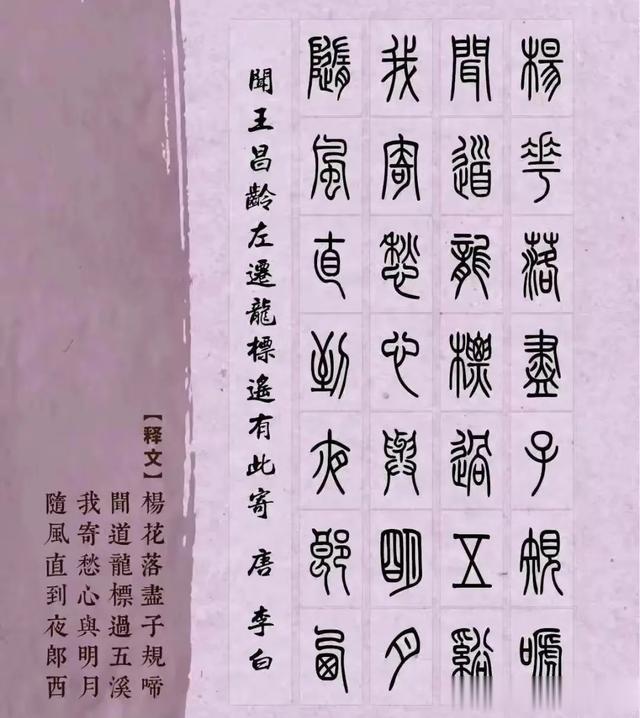 楊花落盡子規啼
聞道龍標過五谿
我寄愁心與明月
隨風直到夜郎西
聞王昌齡左遷龍標遙有此寄 唐 李白
【释文】
楊花落盡子規啼
聞道龍標過五溪
我寄愁心與明月
隨風直到夜郎西